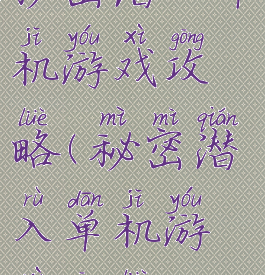 jī yóu xì gōng
机游戏攻
lüè mì mì qián
略(秘密潜
rù dān jī yóu
入单机游